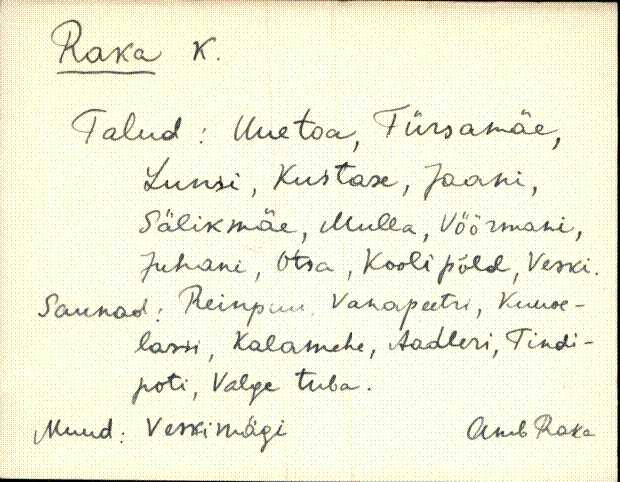 Raka K.
Talud: Uuetoa, Fürsamäe,
Lunsi, Kustase, Jaani,
Sälikmäe, Mulla, Vöörmani,
Juhani, Otsa, Kooli põld, Veski.
Saunad: Reinpuu, Vanapeetri, Kuuse-
lassi, Kalamehe, Aadleri, Tindi-
poti, Valge tuba.
Muud: Veskimägi
Amb Raka